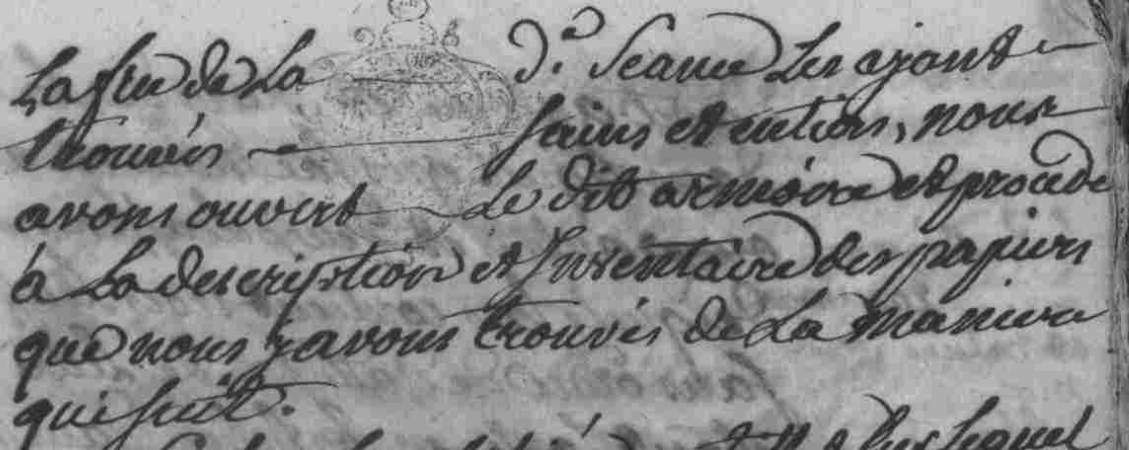 La fin de La d.e Seance Les ayant
trouvés sains et entiers, nous
avons ouvert Le dit armoire et procedé
à La description et Inventaire des papiers
que nous y avons trouvés de La maniere
qui suit.